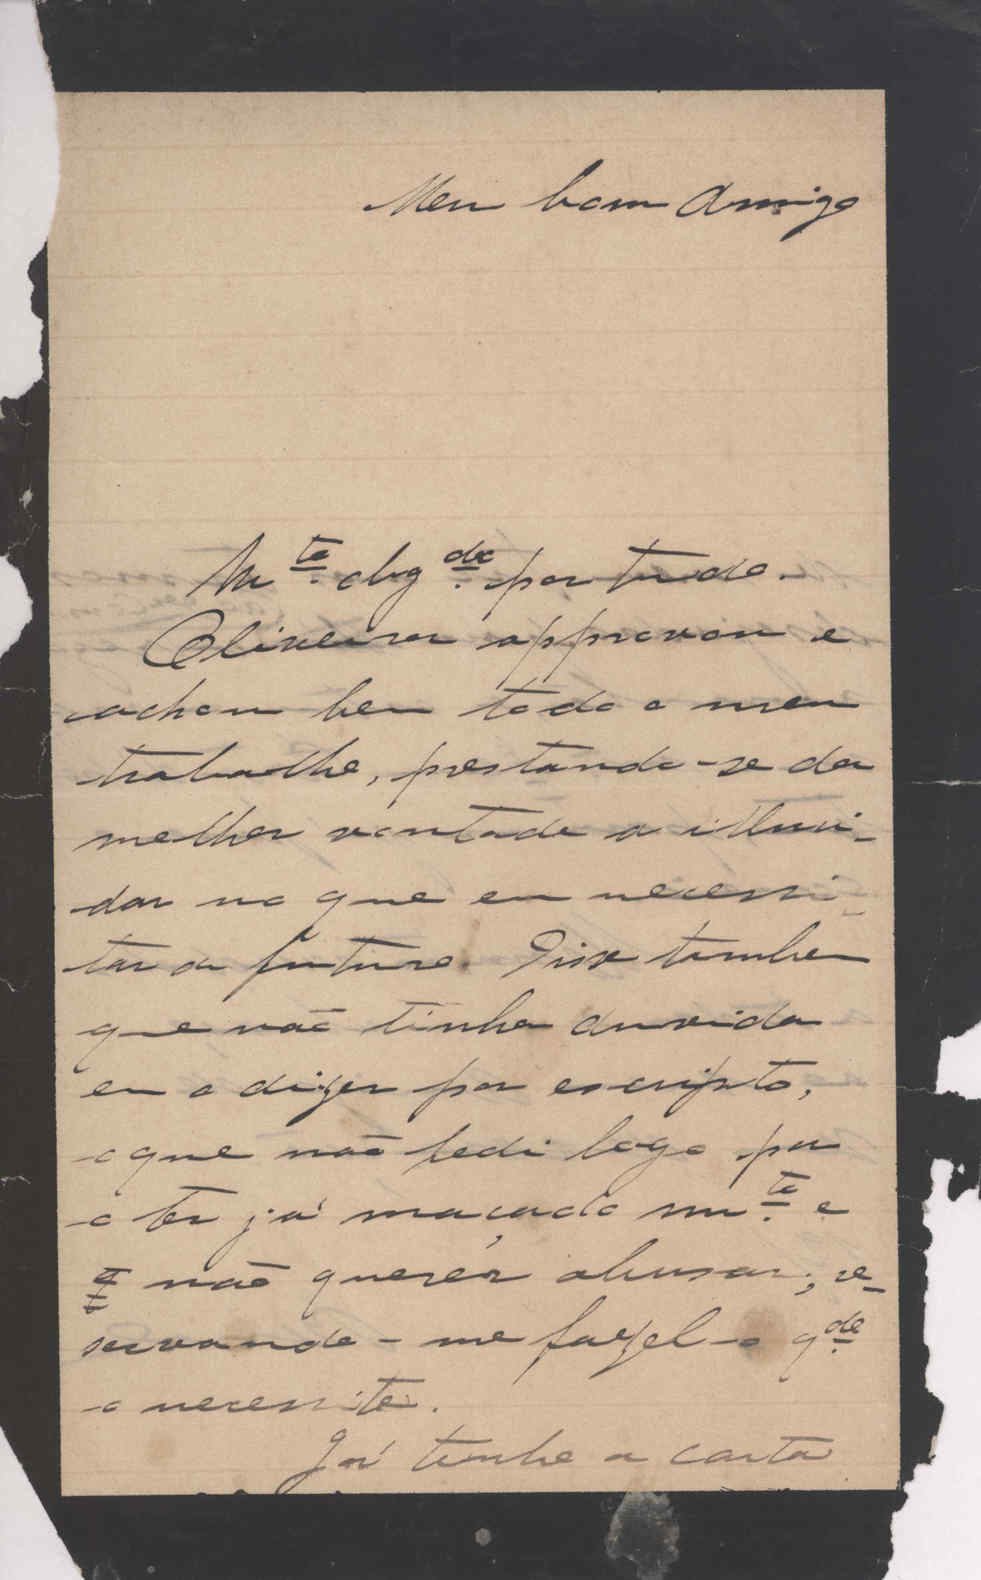 Meu bom Amigo
Mto. obgdo. por tudo.
Oliveira approvou e
achou bem todo o meu
trabalho, prestando-se da
melhor vontade a elluci-
dar no que eu necessi-
tar de futuro. Disse tambem
que não tinha duvida
em o dizer por escripto,
o que não pedi logo por
o ter já maçado mto. e
não querer abusar; re-
servando-me fazel-o qdo.
o necessite.
Já tenho a carta